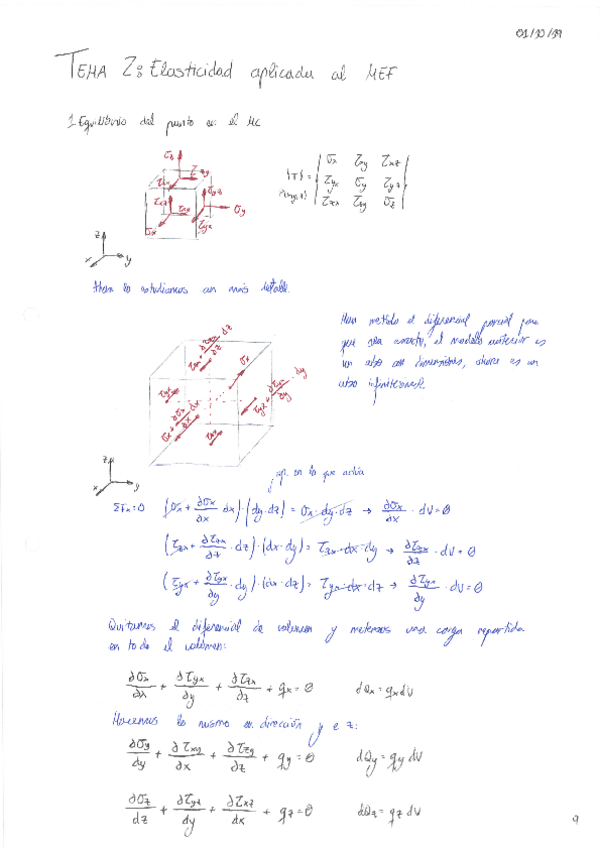 01/10/19
TEMA 2: Elasticidad aplicada al MEF
1. Equilibrio del punto en el MC
σz
τzy
τzx
τyz
τxz
τxy
σy
σx
τyx
{T} =
σx τxy τxz
τyx σy τyz
τzx τzy σz
z
x
y
Ahora lo estudiamos con más detalle.
Han metido el diferencial parcial para
que sea correcto, el modelo anterior es
un cubo con dimensiones, ahora es un
cubo infinitesimal.
τzx + ∂τzx/∂z dz
σx
τyx
τyx + ∂τyx/∂y · dy
σx + ∂σx/∂x dx
τzx
z
x
y
en la que actúa
ΣFx=0 (σx + ∂σx/∂x dx)·(dy·dz) = σx·dy·dz → ∂σx/∂x · dV=0
(τzx + ∂τzx/∂z · dz)·(dx·dy) = τzx·dx·dy → ∂τzx/∂z · dV=0
(τyx + ∂τyx/∂y · dy)·(dx·dz) = τyx·dx·dz → ∂τyx/∂y · dV=0
Quitamos el diferencial de volumen y metemos una carga repartida
en todo el volumen:
∂σx/∂x + ∂τyx/dy + ∂τzx/∂z + qx = 0 dQx = qx dV
Hacemos lo mismo en dirección y e z:
∂σy/dy + ∂τxy/∂x + ∂τzy/∂z + qy = 0 dQy = qy dV
∂σz/dz + ∂τyz/dy + ∂τxz/dx + qz = 0 dQz = qz dV